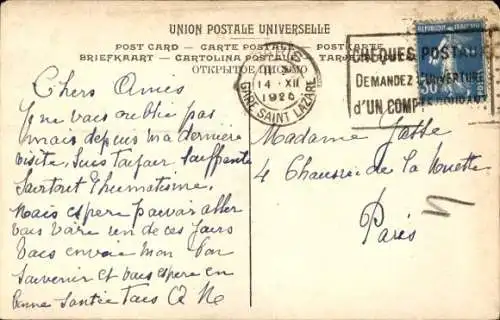 UNION POSTALE UNIVERSELLE
POST CARD — CARTE POSTALE — POSTKARTE
BRIEFKAART — CARTOLINA POSTALE — TAR
ОТКРЫТОЕ ПИСЬМО
PARIS
14 - XII
1926
GARE SAINT LAZARE
CHEQUES POSTAUX
DEMANDEZ L'OUVERTURE
d'UN COMPTE COURANT
Chers Amis
Je ne vous oublie pas
mais depuis ma derniere
visite, suis
Surtout Rhumatisme,
Mais espere pouvoir aller
vous voire un de ces jours
Vous envoie mon bon
Souvenir et vous espere en
bonne Santée Tous
Madame Jasse
4 Chaussée de La Muette
Paris